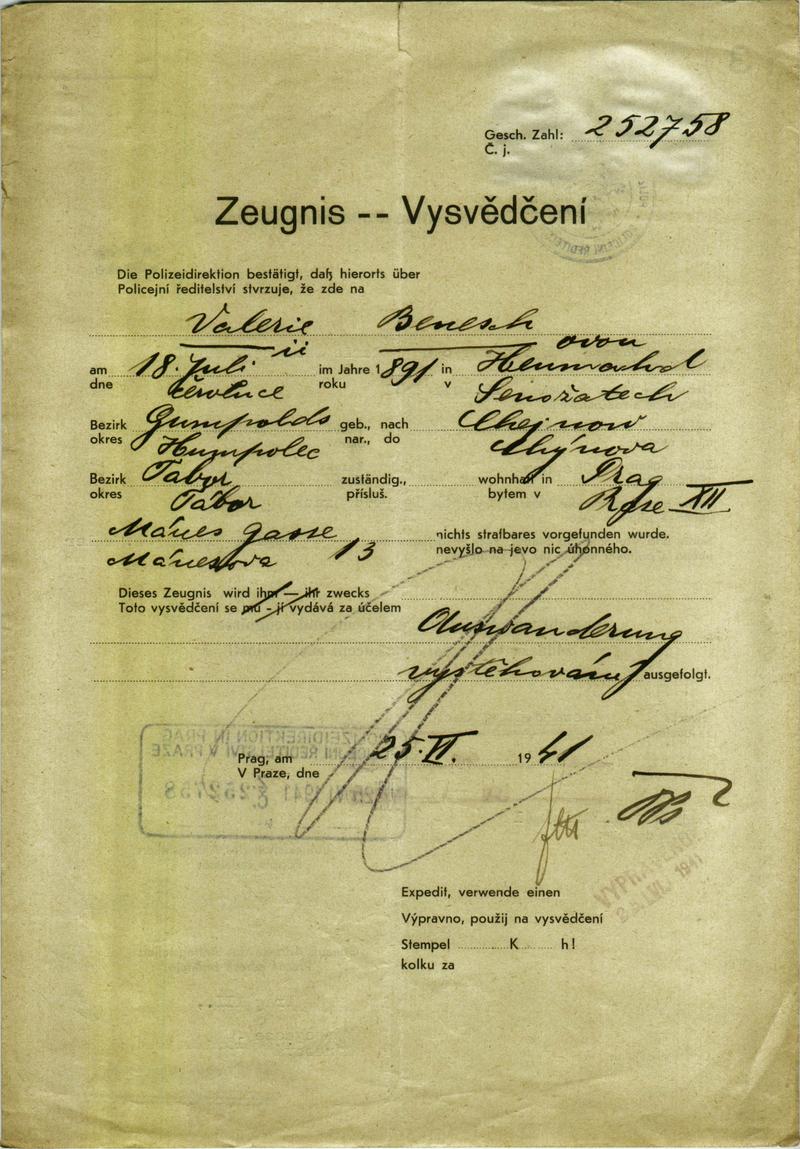 Gesch. Zahl: 252758
Č. j.
Zeugnis -- Vysvědčení
Die Polizeidirektion bestätigt, daß hierorts über
Policejní ředitelství stvrzuje, že zde na
Valerie Benesch
ii ovou
am 18. Juli im Jahre 1891 in
dne července roku v Senožatech
Bezirk Gumpolds geb., nach Chejnow
okres Humpolec nar., do Chýnova
Bezirk Tabor zuständig., wohnhaft in Prag
okres Tábor přísluš. bytem v XII
Mánes gasse nichts strafbares vorgefunden wurde.
Mánesova 13 nevyšlo na jevo nic úhonného.
Dieses Zeugnis wird ihm — ihr zwecks
Toto vysvědčení se mu - jí vydává za účelem
Auswanderung
vystěhování ausgefolgt.
POLIZEIDIREKTION IN PRAG
POLICEJNÍ ŘEDITELSTVÍ V PRAZE
1941 252758
Prag, am 25. VI. 1941
V Praze, dne
VYPRAVENO
VI. 1941
Expedit, verwende einen
Výpravno, použij na vysvědčení
Stempel K h!
kolku za